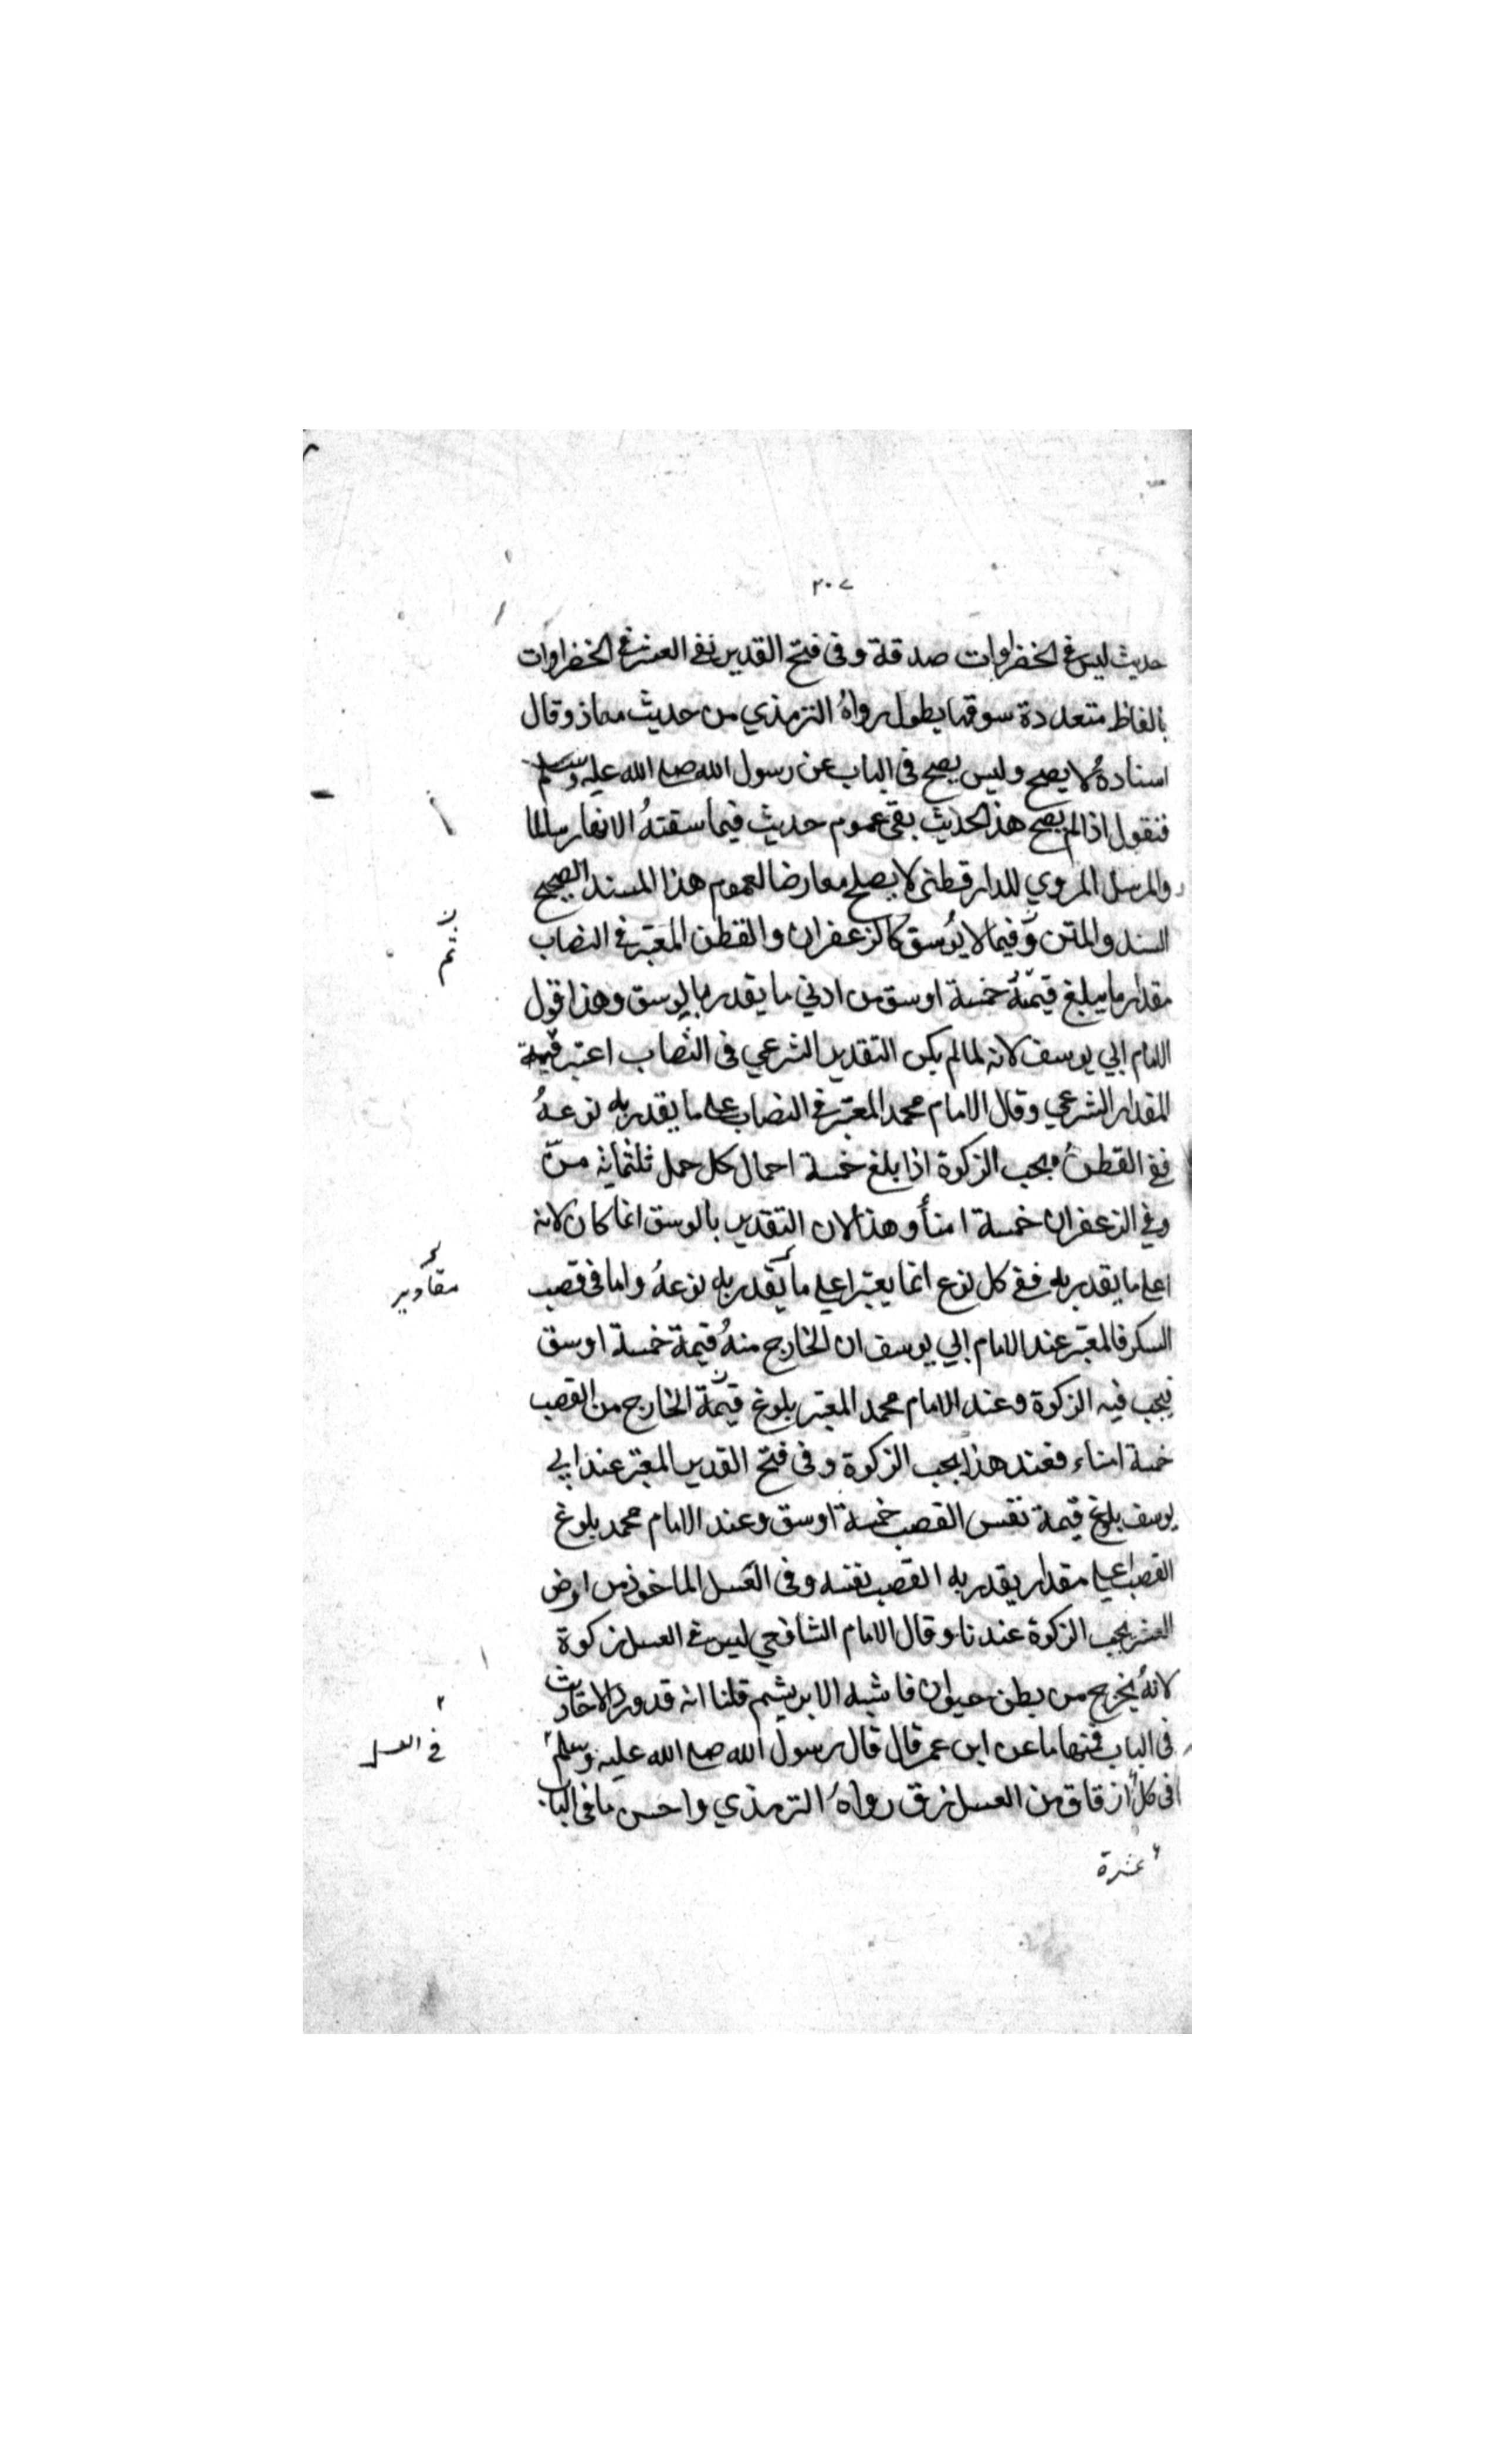 ٢٠٧
حديث ليس في الخضراوات صدقة وفى فتح القدير نفى العشر في الخضراوات
بالفاظ متعددة سوقها يطول رواهُ الترمذي من حديث معاذ وقال
اسنادهُ لا يصح وليس يصح فى الباب عن رسول الله صلى الله عليه وسلم
فنقول اذا لم يصح هذا الحديث بقى عموم حديث فيما سقتهُ الانهار سالما
والمرسل المروي للدارقطنى لا يصلح معارضا لعموم هذا المسند الصحيح
السند والمتن وفيما لا يُوسق كالزعفران والقطن المعتبر في النصاب
مقدار ما يبلغ قيمتهُ خمسة اوسق من ادني ما يقدر بالوسق وهذا قول
الامام ابي يوسف لانه لما لم يكن التقدير الشرعي فى النصاب اعتبر قيمة
المقدار الشرعي وقال الامام محمد المعتبر في النصاب على ما يقدر به نوعهُ
ففى القطن يجب الزكوة اذا بلغ خمسة احمال كل حمل ثلثمائة منّ
وفي الزعفران خمسة امنأ وهذا لان التقدير بالوسق انما كان لانه
اعلى ما يقدر به ففى كل نوع انما يعتبر اعلى ما يقدر به نوعهُ واما فى قصب
مقادير
السكر فالمعتبر عند الامام ابي يوسف ان الخارج منهُ قيمة خمسة اوسق
فيجب فيه الزكوة وعند الامام محمد المعتبر بلوغ قيمة الخارج من القصب
خمسة امناء فعند هذا يجب الزكوة وفى فتح القدير المعتبر عند ابي
يوسف بلوغ قيمة نفس القصب خمسة اوسق وعند الامام محمد بلوغ
القصب اعلى مقدار يقدر به القصب نفسه وفى العسل الماخوذ من ارض
العشر يجب الزكوة عندنا وقال الامام الشافعي ليس في العسل زكوة
لانهُ يخرج من بطن حيوان فاشبه الابريشم قلنا انه قد ورد الاحاديث
فى الباب فمنها ما عن ابن عمر قال قال رسول الله صلى الله عليه وسلم
في العسل
فى كل ازقاق من العسل زق رواهُ الترمذي واحسن ما فى الباب
عشرة